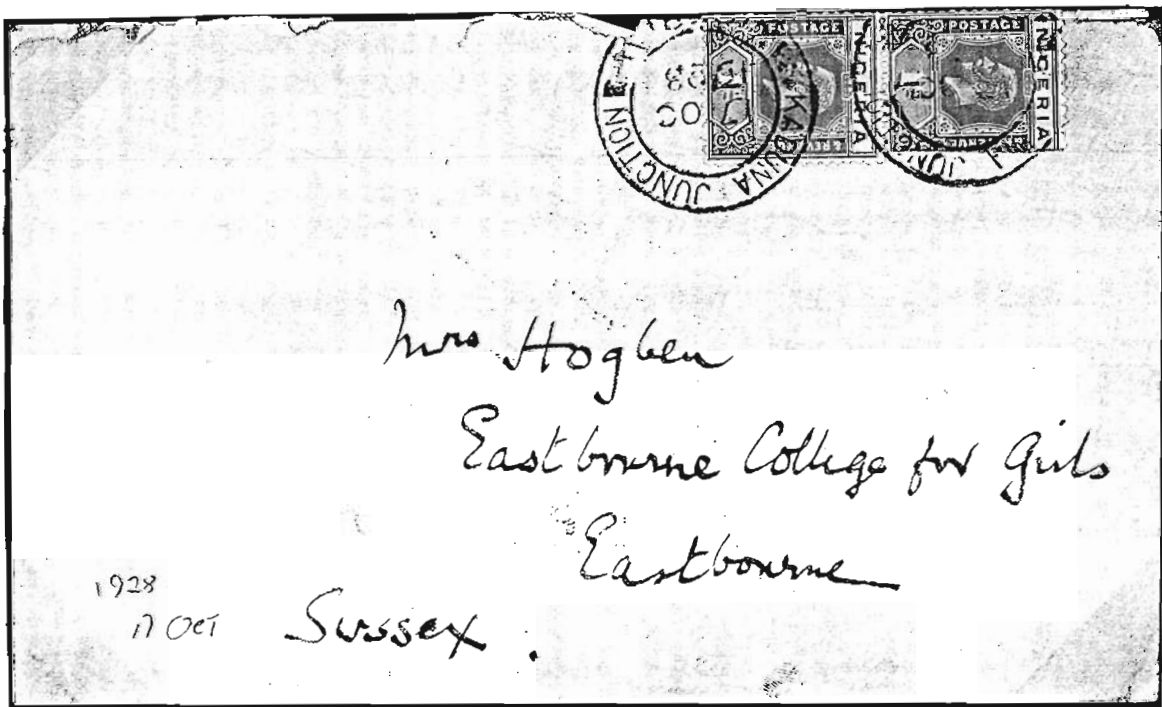 POSTAGE
NIGERIA
POSTAGE
NIGERIA
KADUNA JUNCTION
Mrs Hogben
Eastbourne College for Girls
Eastbourne
Sussex.
1928
17 OCT